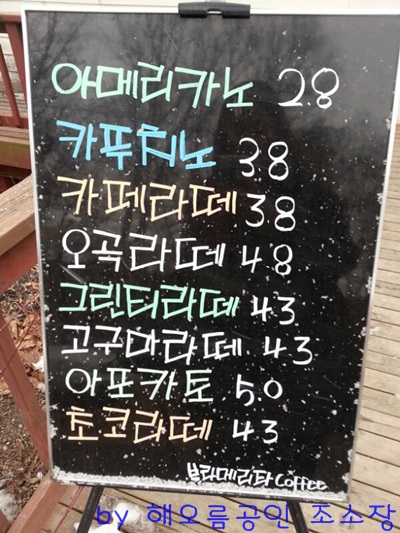 아메리카노 2.8
카푸치노 3.8
카페라떼 3.8
오곡라떼 4.8
그린티라떼 4.3
고구마라떼 4.3
아포카토 5.0
초코라떼 4.3
브라메리타 coffee
by 해오름공인 조소장